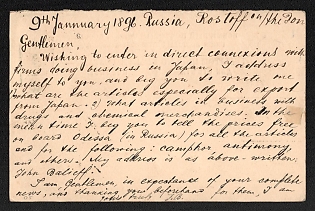 9th Jannuary 1896. Russia, Rostoff on/the Don
Gentlemen,
Wishing to enter in direct connexions with
firms doing business in Japan, I address
myself to you, and beg you to write me
what are the articles especially for export
from Japan. 2) what articles in business with
drugs and chemical merchandises. In the
mean time I beg you to tell the prices free
on board Odessa (in Russia) for all the articles
and for the following: camphor, antimony,
and others. My address is as above-written,
John Balieff.
I am Gentlemen in expectance of your complete
news, and thanking you beforehand for them I am
yours truly J.B.